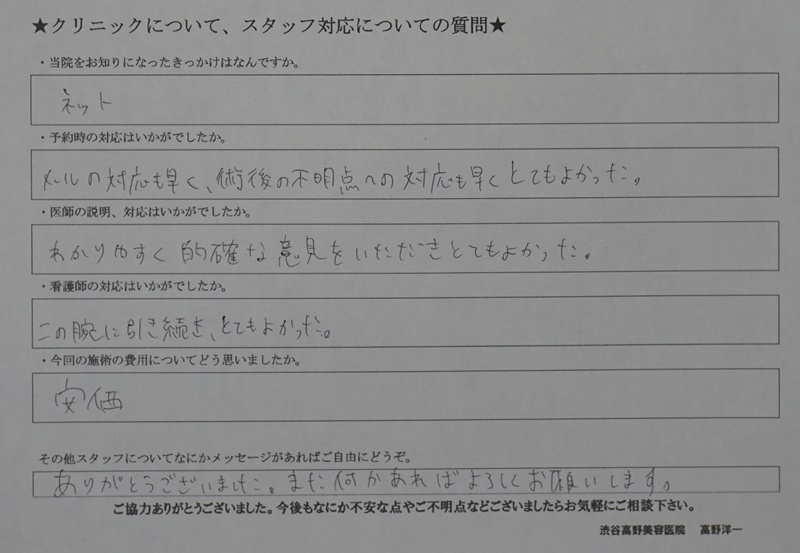 ★クリニックについて、スタッフ対応についての質問★
・当院をお知りになったきっかけはなんですか。
ネット
・予約時の対応はいかがでしたか。
メールの対応も早く、術後の不明点への対応も早くとてもよかった。
・医師の説明、対応はいかがでしたか。
わかりやすく的確な意見をいただきとてもよかった。
・看護師の対応はいかがでしたか。
この腕に引き続き、とてもよかった。
・今回の施術の費用についてどう思いましたか。
安価
その他スタッフについてなにかメッセージがあればご自由にどうぞ。
ありがとうございました。また何かあればよろしくお願いします。
ご協力ありがとうございました。今後もなにか不安な点やご不明点などございましたらお気軽にご相談下さい。
渋谷高野美容医院　高野洋一